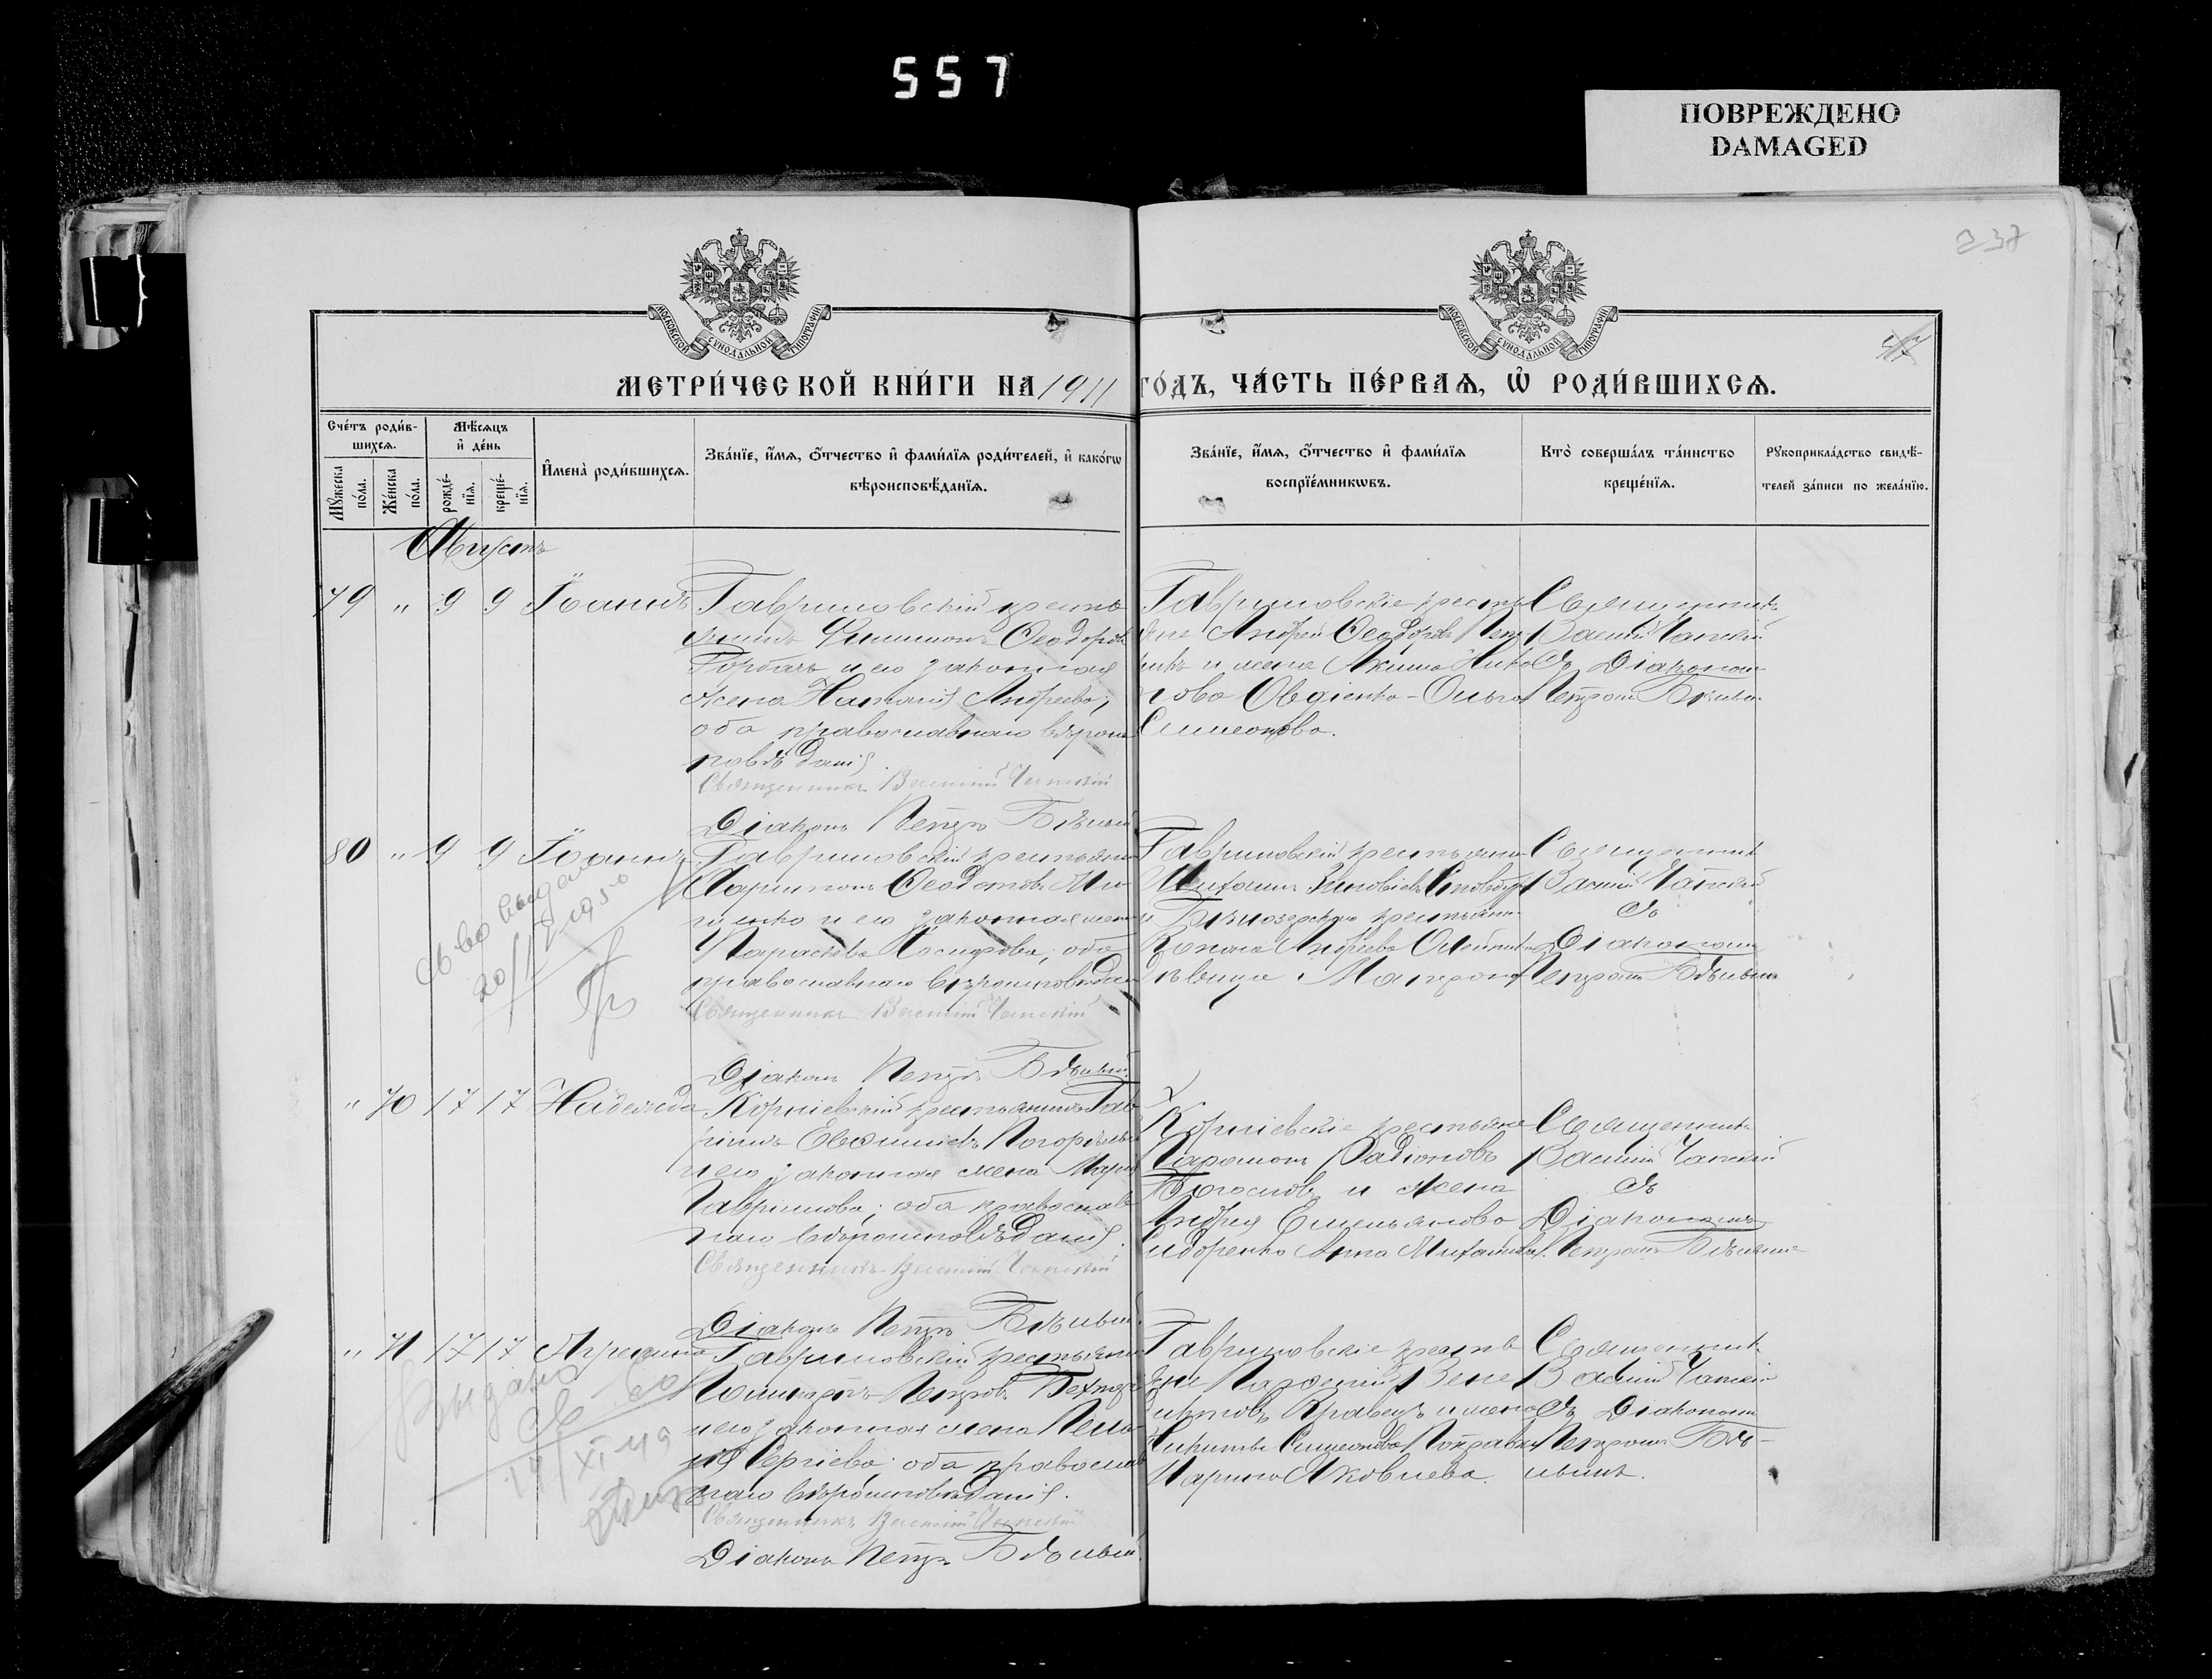 557
ПОВРЕЖДЕНО
DAMAGED
237
47
МОСКОВСКОЙ СУНОДАЛЬНОЙ ТИПОГРАФІИ
МОСКОВСКОЙ СУНОДАЛЬНОЙ ТИПОГРАФІИ
МЕТРИ́ЧЕСКОЙ КНИ́ГИ НА 1911 ГО́ДЪ, ЧА́СТЬ ПЕ́РВАѦ, Ѡ҆ РОДИ́ВШИХСѦ.
Сче́тъ роди́в-
шихсѧ.
Мꙋ́жеска по́ла.
Же́нска по́ла.
Мѣ́сѧцъ
и҆ де́нь
рожде́-
нїѧ.
креще́-
нїѧ.
И҆мена̀ роди́вшихсѧ.
Зва́нїе, и҆́мѧ, ѻ҆́тчество и҆ фами́лїѧ роди́телей, и҆ како́гѡ
вѣроисповѣ́данїѧ.
Зва́нїе, и҆́мѧ, ѻ҆́тчество и҆ фами́лїѧ
воспрїе́мникѡвъ.
Кто̀ соверша́лъ та́инство
креще́нїѧ.
Рꙋкоприкла́дство свидѣ́-
телей за́писи по жела́нїю.
Августъ
79 " 9 9 Іоаннъ
Гавриловскій кресть
янинъ Филимонъ Ѳеодоровъ
Горбачъ и его законная
жена Наталія Андреева;
оба православнаго вѣроис
повѣданія.
Священникъ Василій Чапскій
Діаконъ Петръ Бѣлый
Гавриловскіе кресть
яне Андрей Ѳеодоровъ
и жена
Овдіенко - Ольга
Симеонова.
Священникъ
Василій Чапскій
съ Діакономъ
Петромъ Бѣлымъ
80 " 9 9 Іоаннъ
Гавриловскій крестьянинъ
Харитонъ Ѳеодотовъ Ми
щенко и его законная жена
Параскева Іосифова; оба
православнаго вѣроисповѣданія
Священникъ Василій Чапскій
Діаконъ Петръ Бѣлый
Гавриловскій крестьянинъ
Михаилъ Зиновіевъ
и Бѣлозерскаго крестьянина
Андреева
дѣвица Матрона
Священникъ
Василій Чапскій
съ
Діакономъ
Петромъ Бѣлымъ
Св во выдано
20/ 1950
" 70 17 17 Надежда
Корніевскій крестьянинъ Гав
ріилъ Евѳиміевъ Погорѣлый
и его законная жена Марія
Гавріилова; оба православ
наго вѣроисповѣданія.
Священникъ Василій Чапскій
Діаконъ Петръ Бѣлый
Корніевскіе крестьяне
Парамонъ Радіоновъ
и жена
Андрея Емельянова
Сидоренко Анна Михайлова.
Священникъ
Василій Чапскій
съ
Діакономъ
Петромъ Бѣлымъ
" 71 17 17 Агрепина
Гавриловскій крестьянинъ
Поликарпъ Петровъ
и его законная жена Пела
гія Сергіева; оба православ
наго вѣроисповѣданія.
Священникъ Василій Чапскій
Діаконъ Петръ Бѣлый
Гавриловскіе кресть
яне Вене
диктовъ Кравецъ и жена
Симеонова
Марина Яковлева.
Священникъ
Василій Чапскій
съ Діакономъ
Петромъ Бѣ-
лымъ.
Выдано
Св во
/XI-49